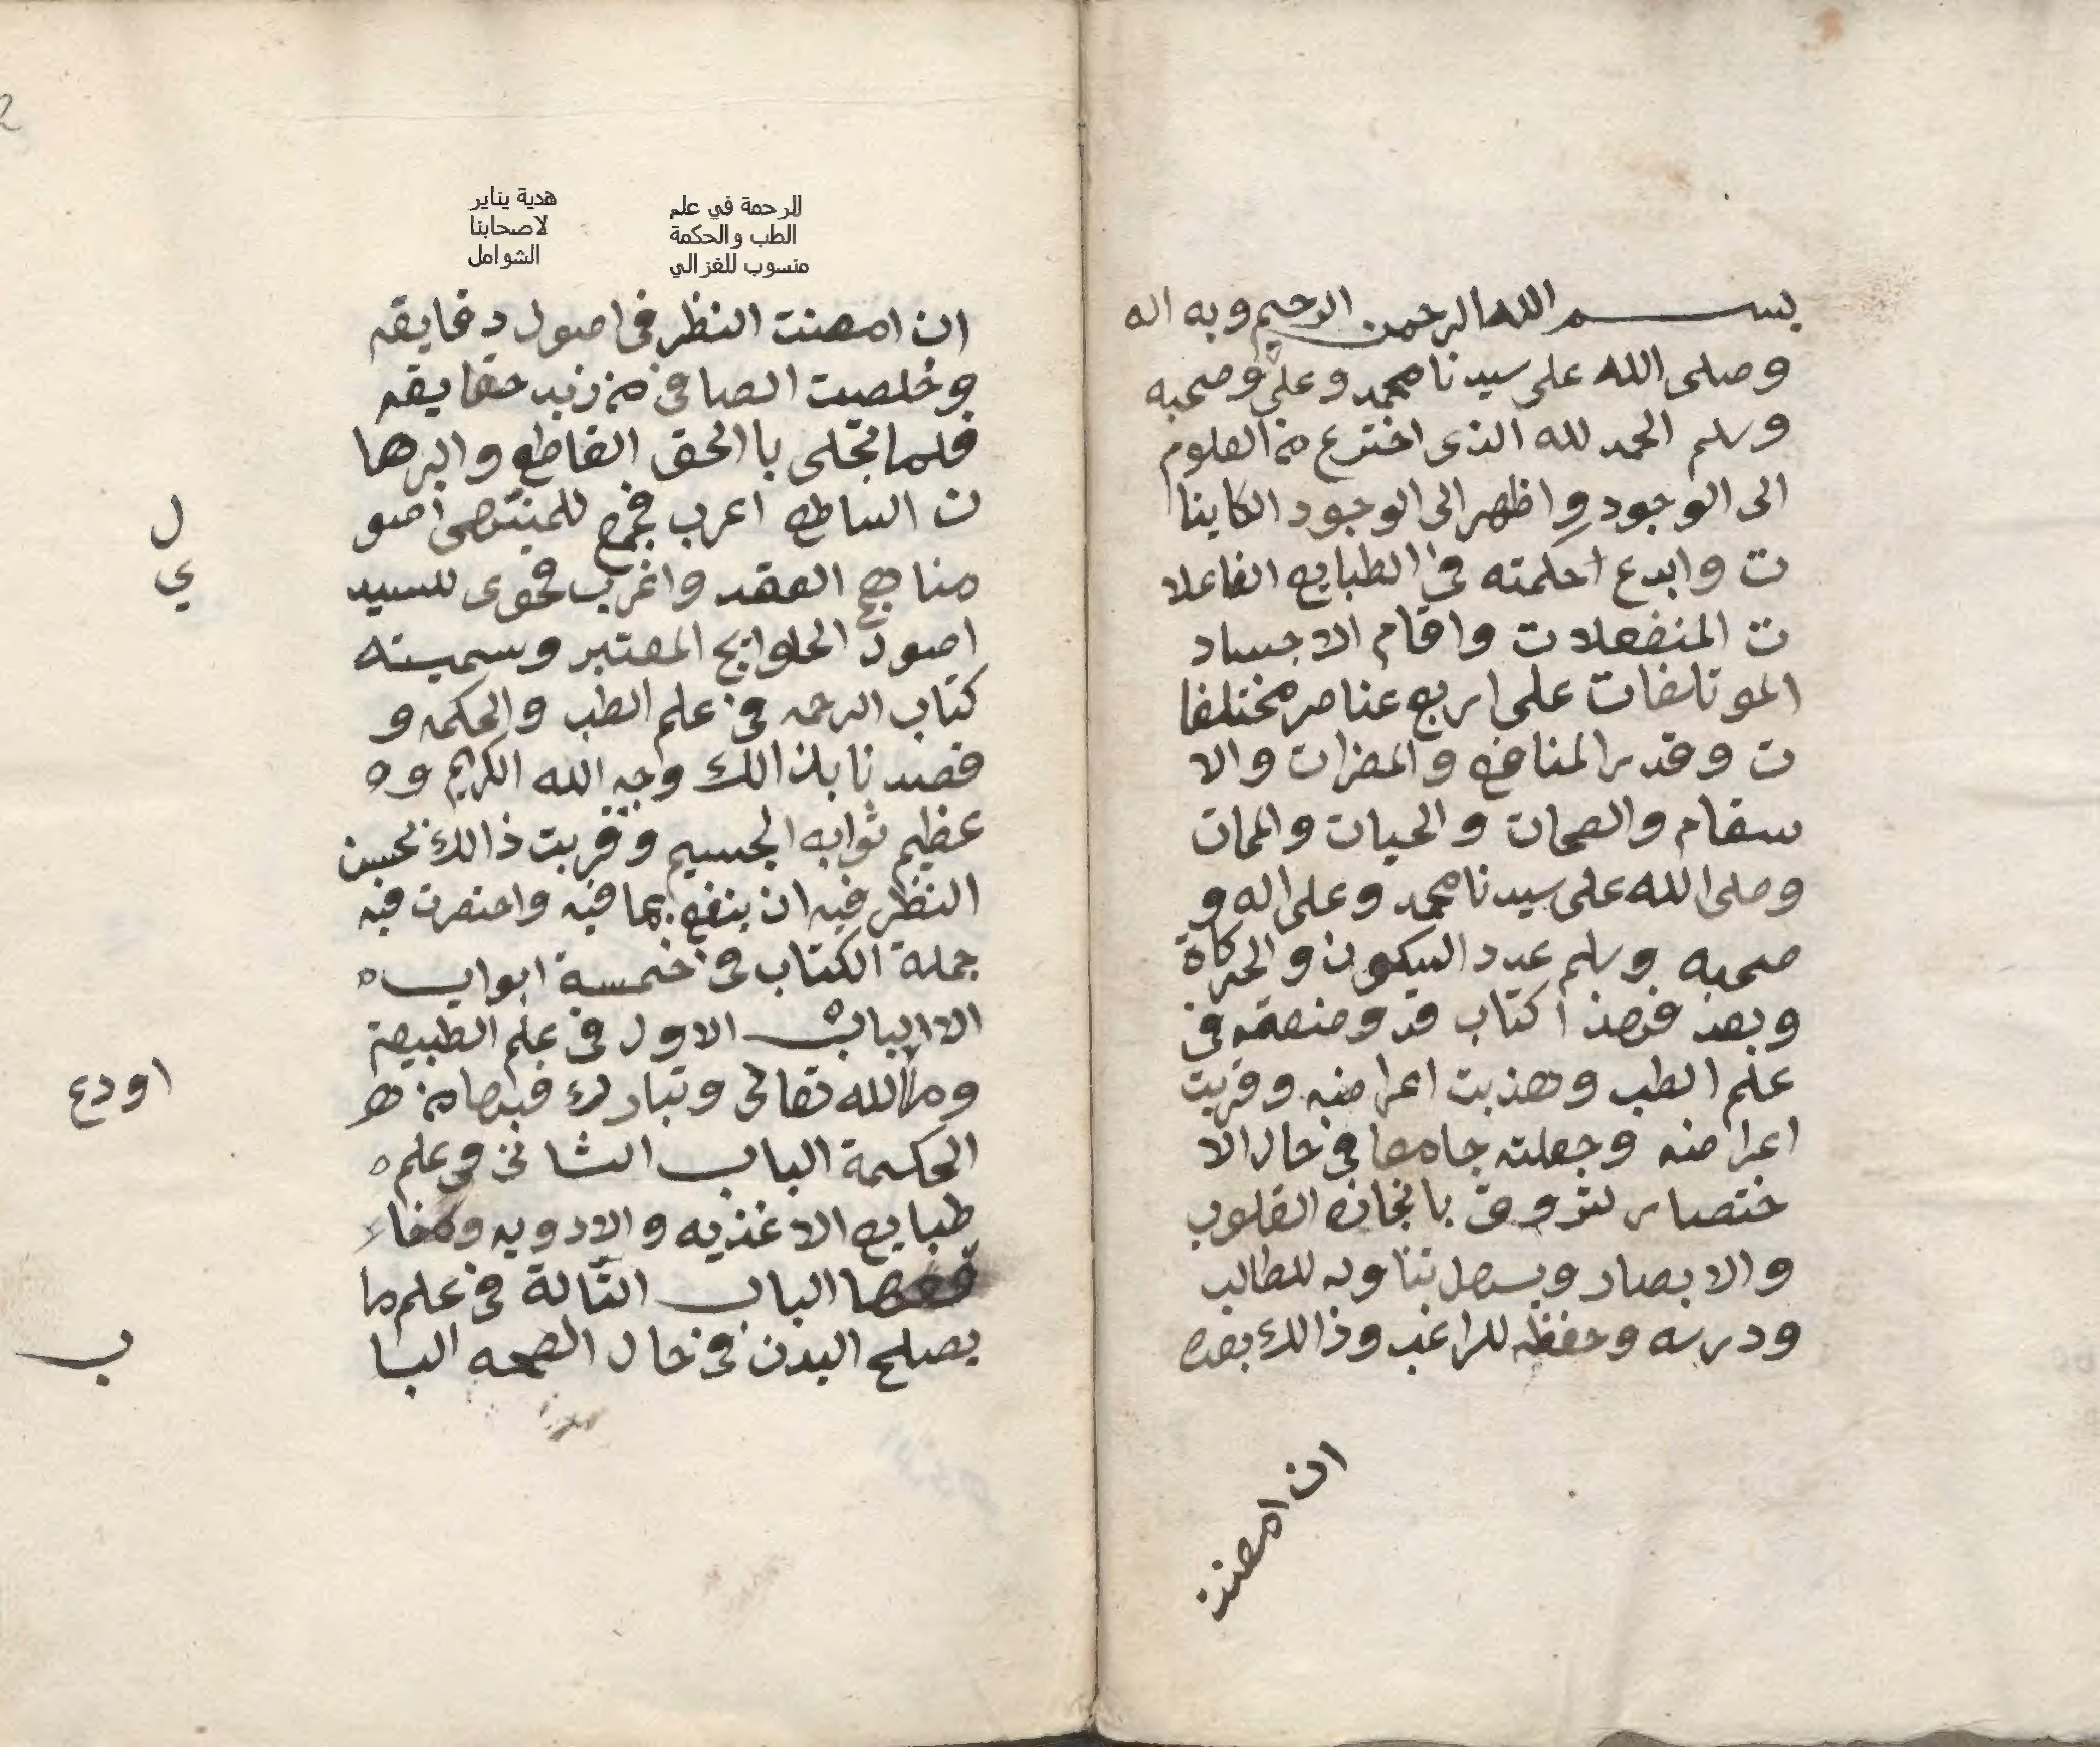 بسم الله الرحمن الرحيم وبه اله
وصلى الله على سيدنا محمد وعلى وصحبه
وسلم الحمد لله الذى اخترع من العلوم
الى الوجود واظهر الى الوجود الكاينا
ت وابدع احكمته في الطبايع الفاعلا
ت المنفعلات واقام الاجساد
الموتلفات على اربع عناصر مختلفا
ت وقدر المنافع والمضرات والا
سقام والصحات والحيات والممات
وصلى الله على سيدنا محمد وعلى اله و
صحبه وسلم عدد السكون والحركاة
وبعد فهذا كتاب قد وضعته في
علم الطب وهذبت اعراضه وقربت
اعراضه وجعلته جامعا في حال الا
ختصار لتروق القلوب
والابصار ويسهل تناوله للطالب
ودرسه وحفظه للراغب وذالك بعده
ان امعنت
الرحمة في علم
الطب والحكمة
منسوب للغزالي
هدية يناير
لاصحابنا
الشوامل
ان امعنت النظر في اصول دقايقه
وخلصت الصافي من زبد حقايقه
فلما تجلى باالحق القاطع والبرها
ن الساطع اعرب للمنتهى اصو
ل
مناهج العقد واغرب فحوى للسيد
ي
اصول المعتبر وسميته
كتاب الرحمه في علم الطب والحكمه و
قصدنا بذالك وجه الله الكريم وه
عظيم ثوابه الجسيم وقربت ذالك لحسن
النظر فيه ان ينفع بما فيه واختصرت فيه
جملة الكتاب في خمسة ابواب ه
الا الباب الاول في علم الطبيعة
وما الله تعالى وتبارك فيها من هر
اودع
الحكمة الباب الثاني في علم ه
طبايع الاغذيه والادويه ومنفاء
فعها الباب الثالة في علم ما
يصلح البدن في حال الصحه البا
ب